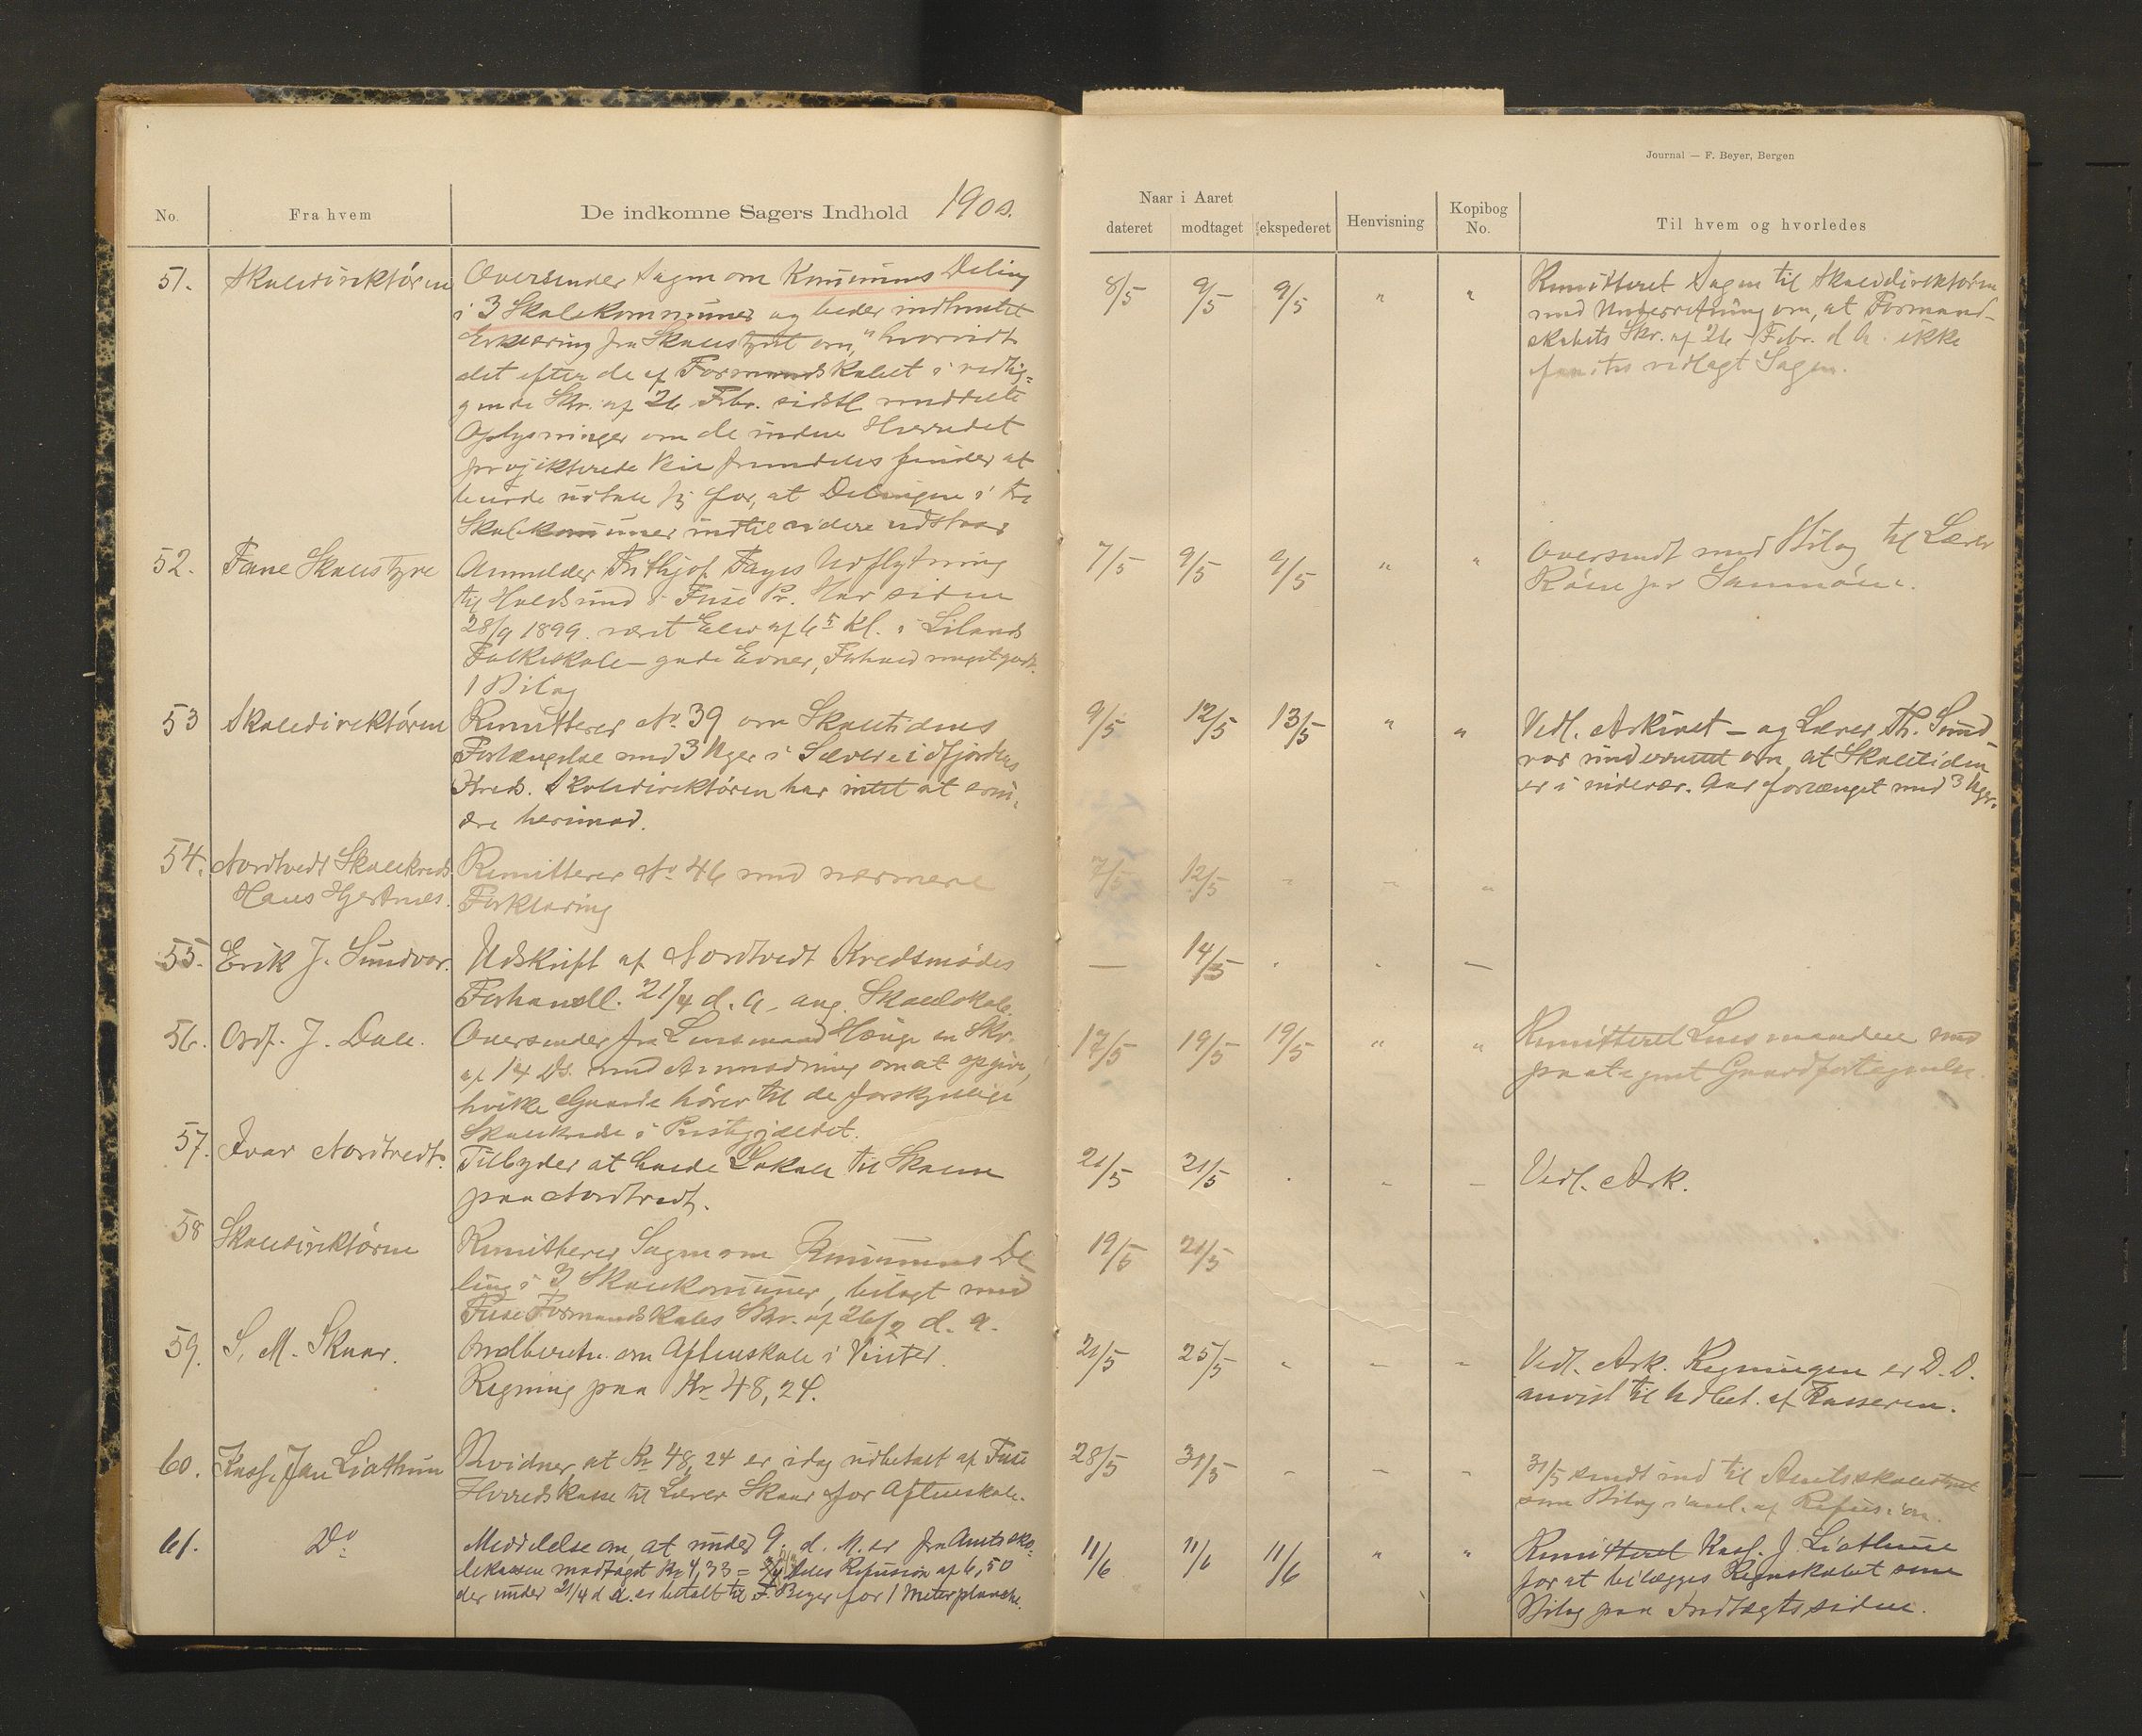 Journal — F. Beyer, Bergen
No.
Fra hvem
De indkomne Sagers Indhold 1900.
Naar i Aaret
dateret modtaget ekspederet
Henvisning
Kopibog
No.
Til hvem og hvorledes
51. Skoledirektören
Oversender Sagen om Kommunens Deling
i 3 Skolekommuner og beder indhentet
Erklæring fra Skolestyret om, "hvorvidt
det efter de af Formandskabet i vedlig-
gende Skr. af 26 Febr. sidstl. meddelte
Oplysninger om de inden Herredet
projekterede Veie fremdeles finder at
burde udtale sig for, at Delingen i tre
Skolekommuner indtil videre udstaar
8/5 9/5 9/5 " "
Remitteret Sagen til Skoledirektören
med Underretning om, at Formand-
skabets Skr. af 26 Febr. d. A. ikke
fantes vedlagt Sagen.
52. Fane Skolestyre
Anmelder Frithjof Fayes Udflytning
til Holdsund i Fuse Pr. Har siden
28/9 1899 været Elev af 5 Kl. i Lilands
Folkeskole — gode Evner, Forhold meget godt.
1 Bilag
7/5 9/5 9/5 " "
Oversendt med Bilag til Lærer
53 Skoledirektören
Remitterer No. 39 om Skoletidens
Forlængelse med 3 Uger i Sævareidfjordens
Kreds. Skoledirektören har intet at erin-
dre herimod.
9/5 12/5 13/5 " "
Vedl. Arkivet — og Lærer Th. Sund-
vor underrettet om, at Skoletiden
er i indevær. Aar forlænget med 3 Uger.
54. Nordtvedt Skolekreds
Hans Hjertnes.
Remitterer No. 46 med nærmere
Forklaring
7/5 12/5 - - "
55. Erik J. Sundvor.
Udskrift af Nordtvedt Kredsmödes
Forhandl. 21/4 d. A. ang. Skolelokale.
— 14/5 - - —
56. Ordf. J. Dale.
Oversender fra Lensmand Hauge en Skr.
af 14 Ds. med Anmodning om at opgive,
hvilke Gaarde hörer til de forskjellige
Skolekredse i Prestegjældet.
17/5 19/5 19/5 " "
Remitteret Lensmanden med
paategnet Gaardfortegnelse.
57. Ivar Nordtvedt.
Tilbyder at leie Lokale til Skolen
paa Nordtvedt.
21/5 21/5 - - -
Vedl. Ark.
58 Skoledirektören
Remitterer Sagen om Kommunens De-
ling i 3 Skolekommuner, bilagt med
Fuse Formandskabs Skr. af 26/2 d. A.
19/5 21/5
59. S. M. Skaar.
Indberetn. om Aftenskole i Vinter.
Regning paa Kr. 48,24.
21/5 25/5 - - -
Vedl. Ark. Regningen er D. D.
anvist til Udbet. af Kasseren.
60. Kass. Jan Liathun
Bevidner, at Kr. 48,24 er idag udbetalt af Fuse
Herredskasse til Lærer Skaar for Aftenskole.
28/5 31/5 - - -
31/5 sendt ind til Amtsskolestyret
som Bilag i Anl. af Refusion.
61. Do
Meddelelse om, at under 9. d. M. er fra Amtssko-
lekassen modtaget Kr. 4,33 = 2/3 Refusion af 6,50
der under 21/4 d. A. er betalt til F. Beyer for 1 Meterplanche.
11/6 11/6 11/6 " "
Remitteret Kass. J. Liathun
for at bilægges Regnskabet som
Bilag paa Indtægtssiden.